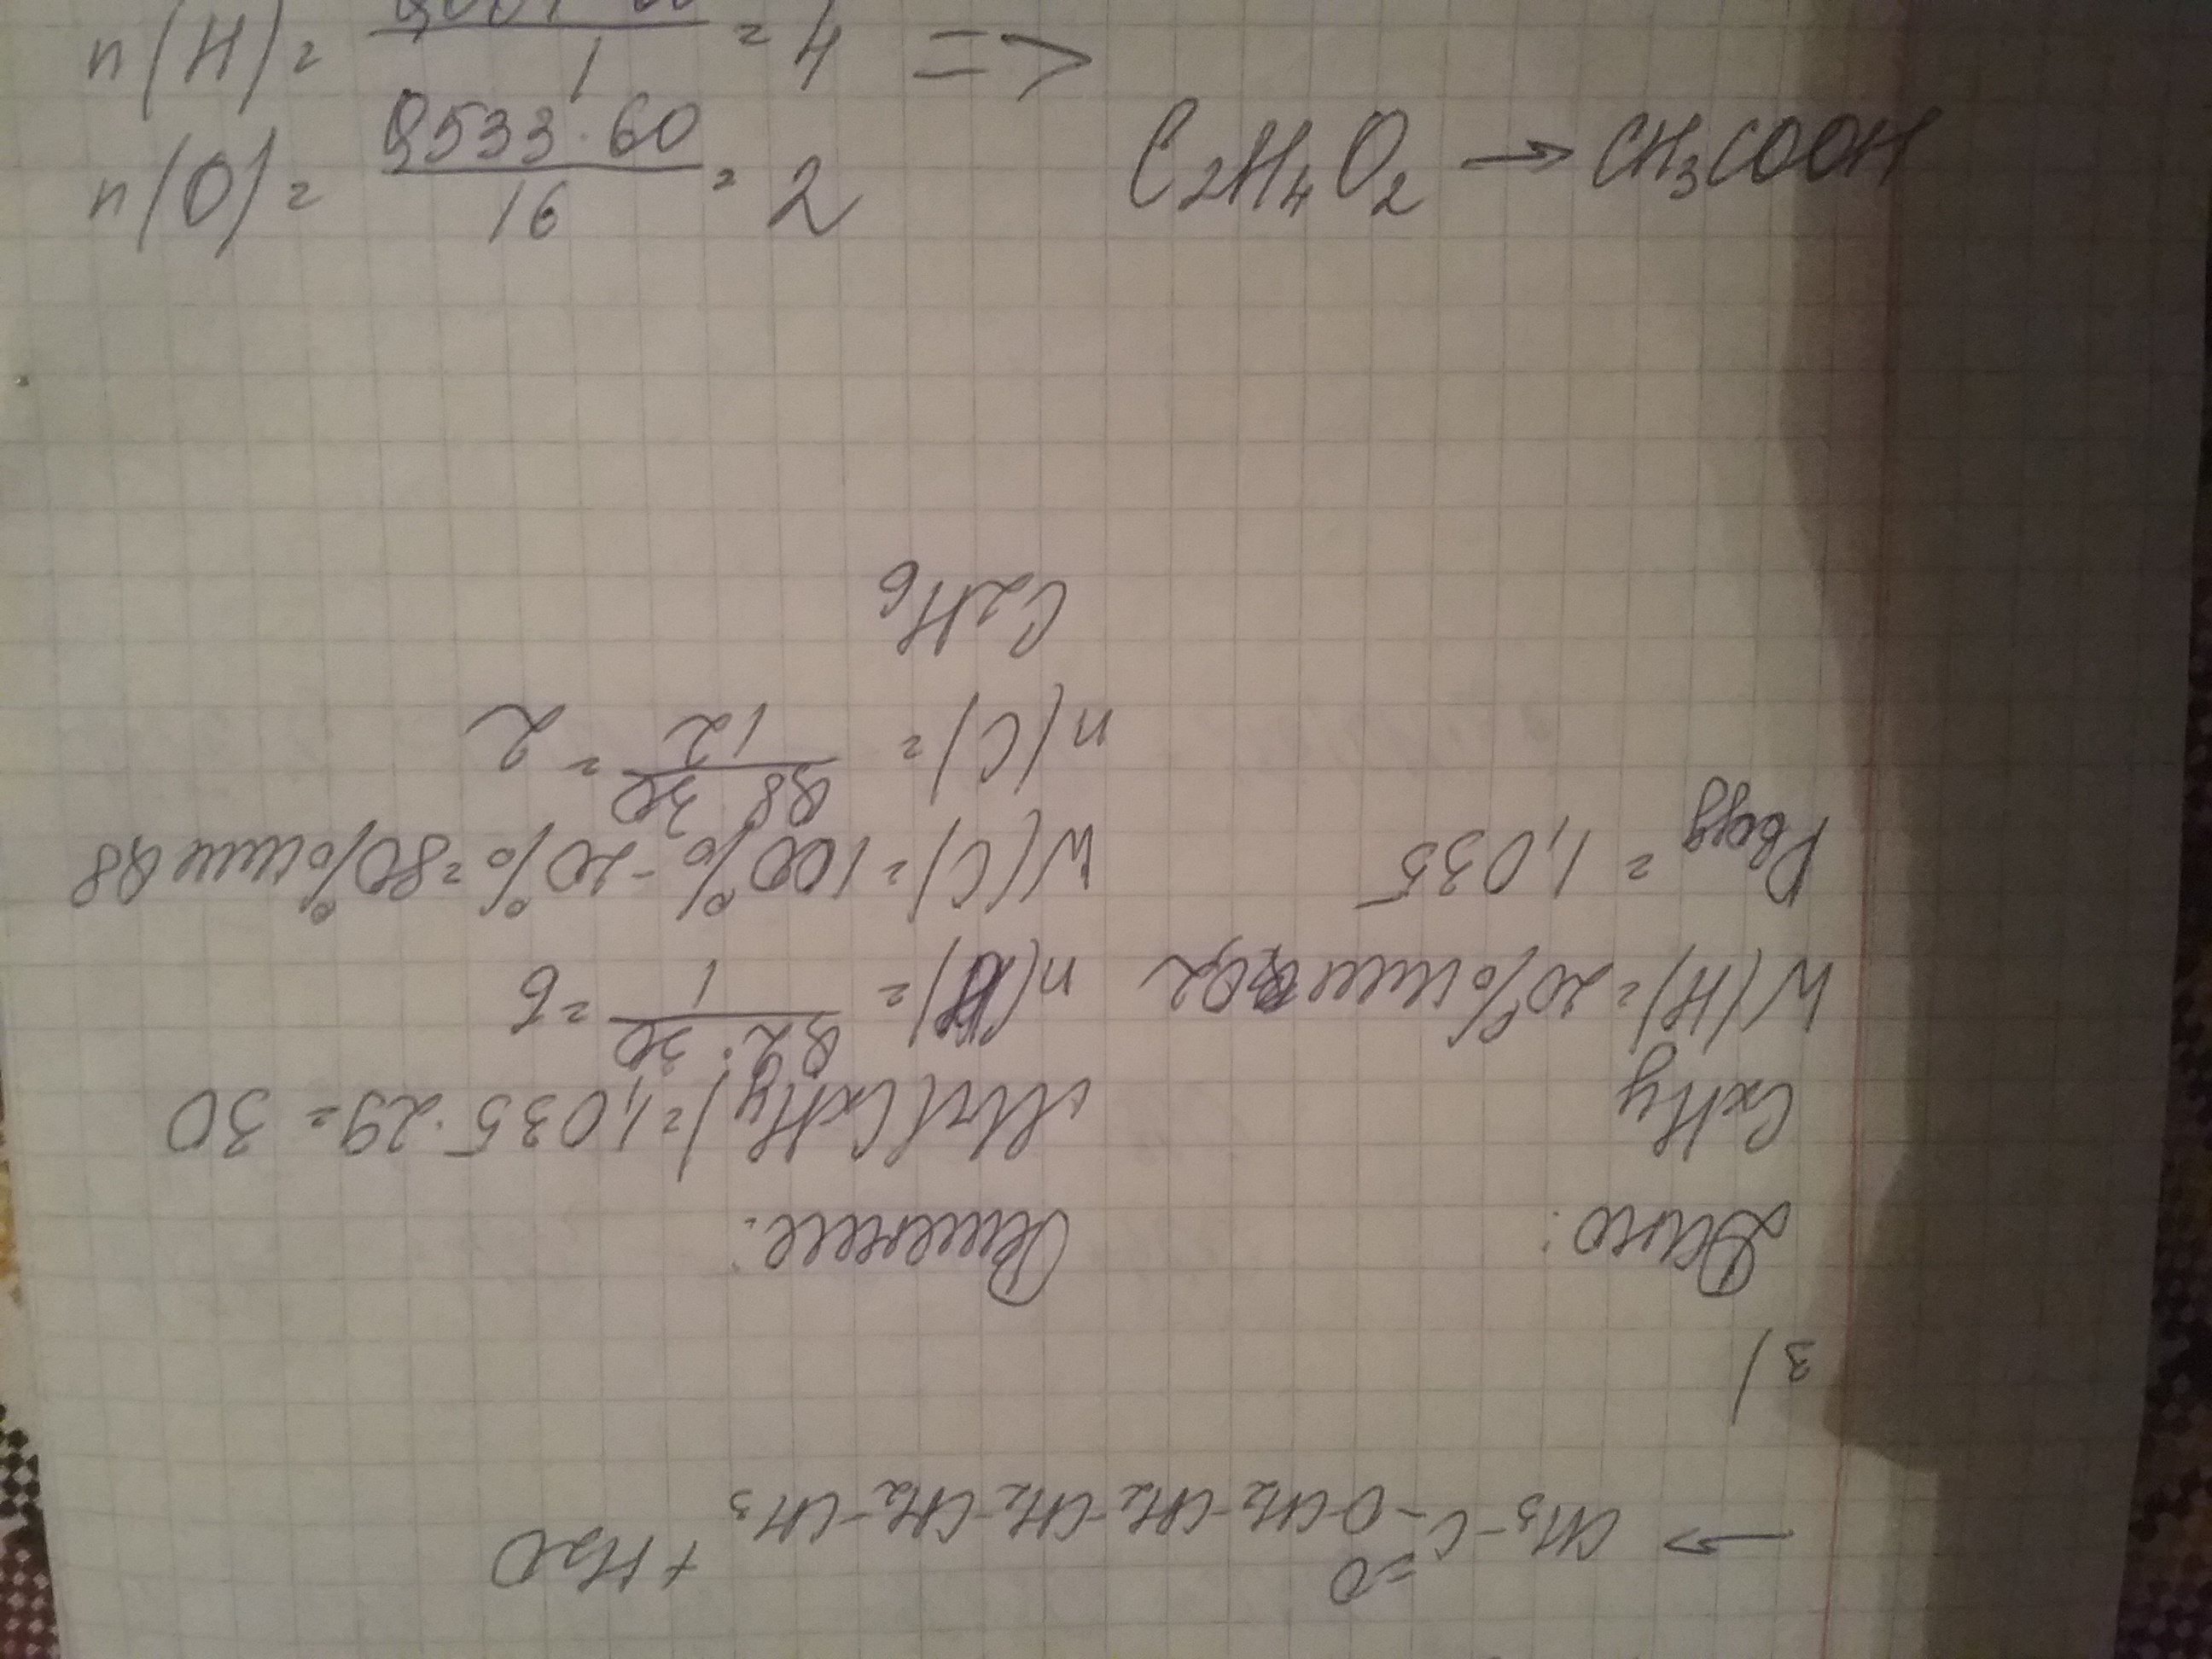 n(H)= /1 = 4 =>
n(O)= 0,533·60/16 = 2
C2H4O2 → CH3COOH
→ CH3-C=O-OCH2-CH2-CH2-CH2-CH3 + H2O
3)
Дано:
CxHy
W(H)=20% или 0,2
Dвозд = 1,035
Решение:
Mr(CxHy)=1,035·29=30
n(H)= 0,2·30/1 =6
W(C)=100%-20%=80% или 0,8
n(C)= 0,8·30/12 =2
C2H6